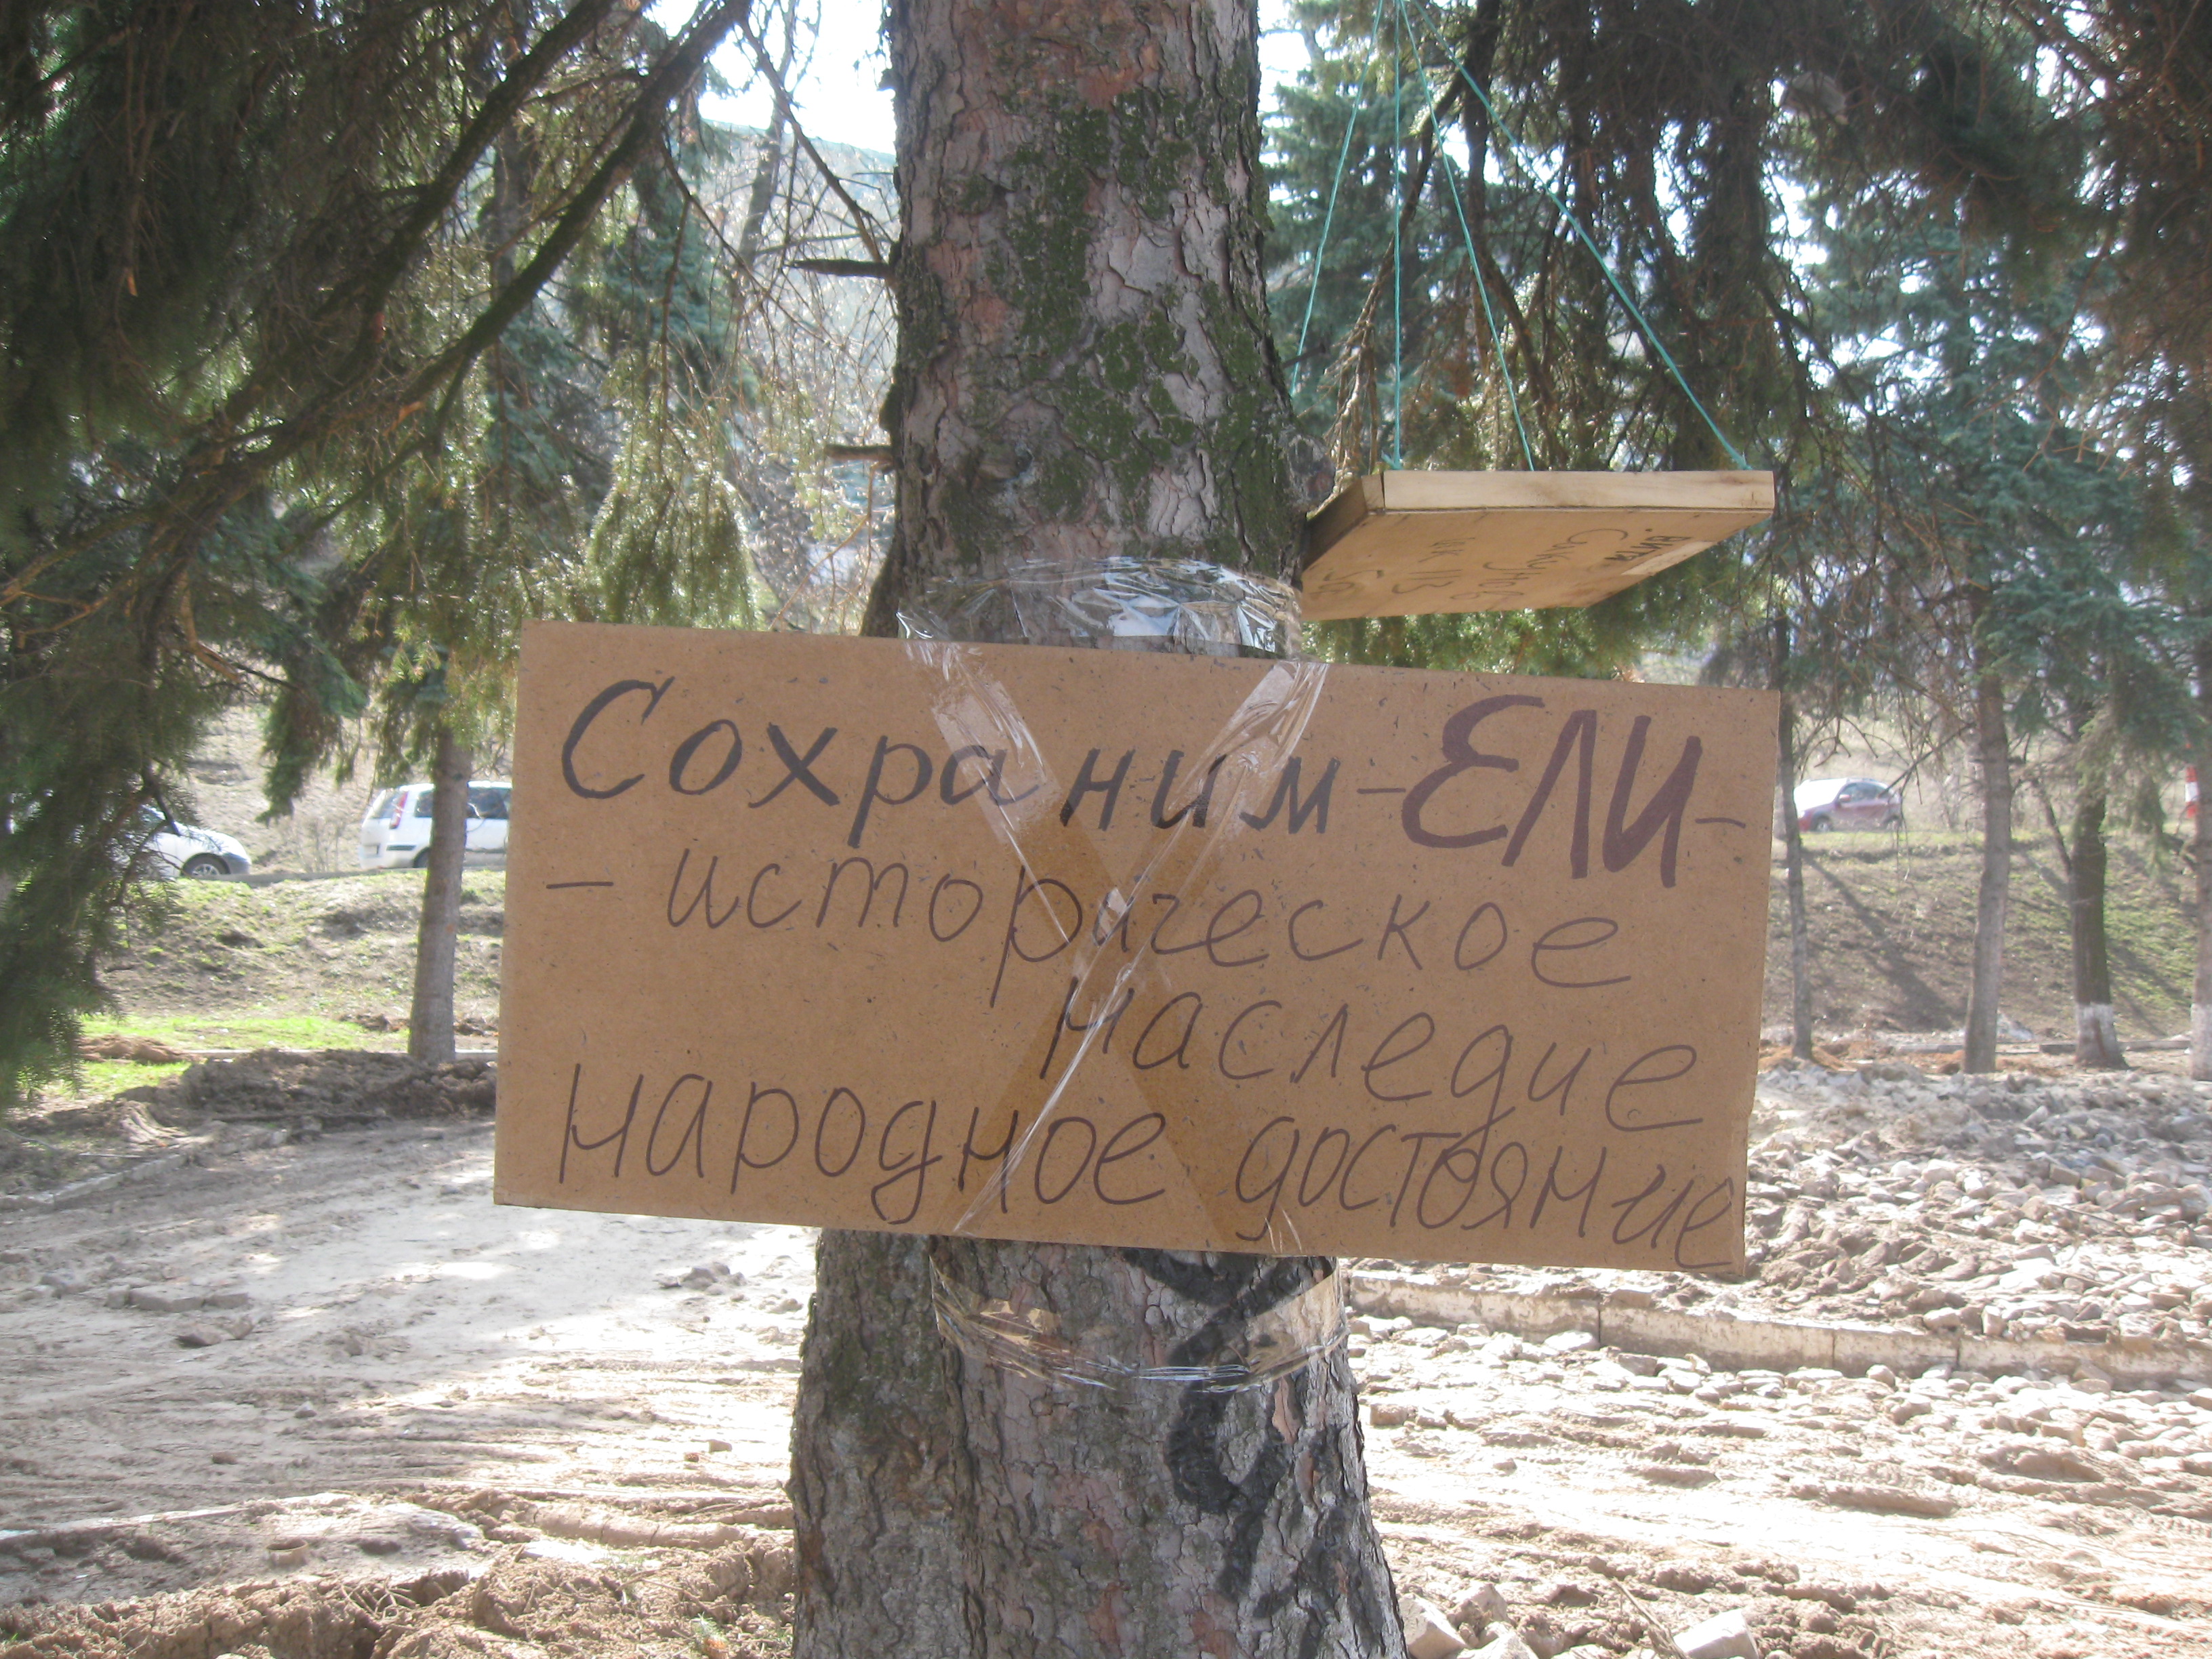 Сохраним - ЕЛИ -
- историческое
наследие
народное достояние